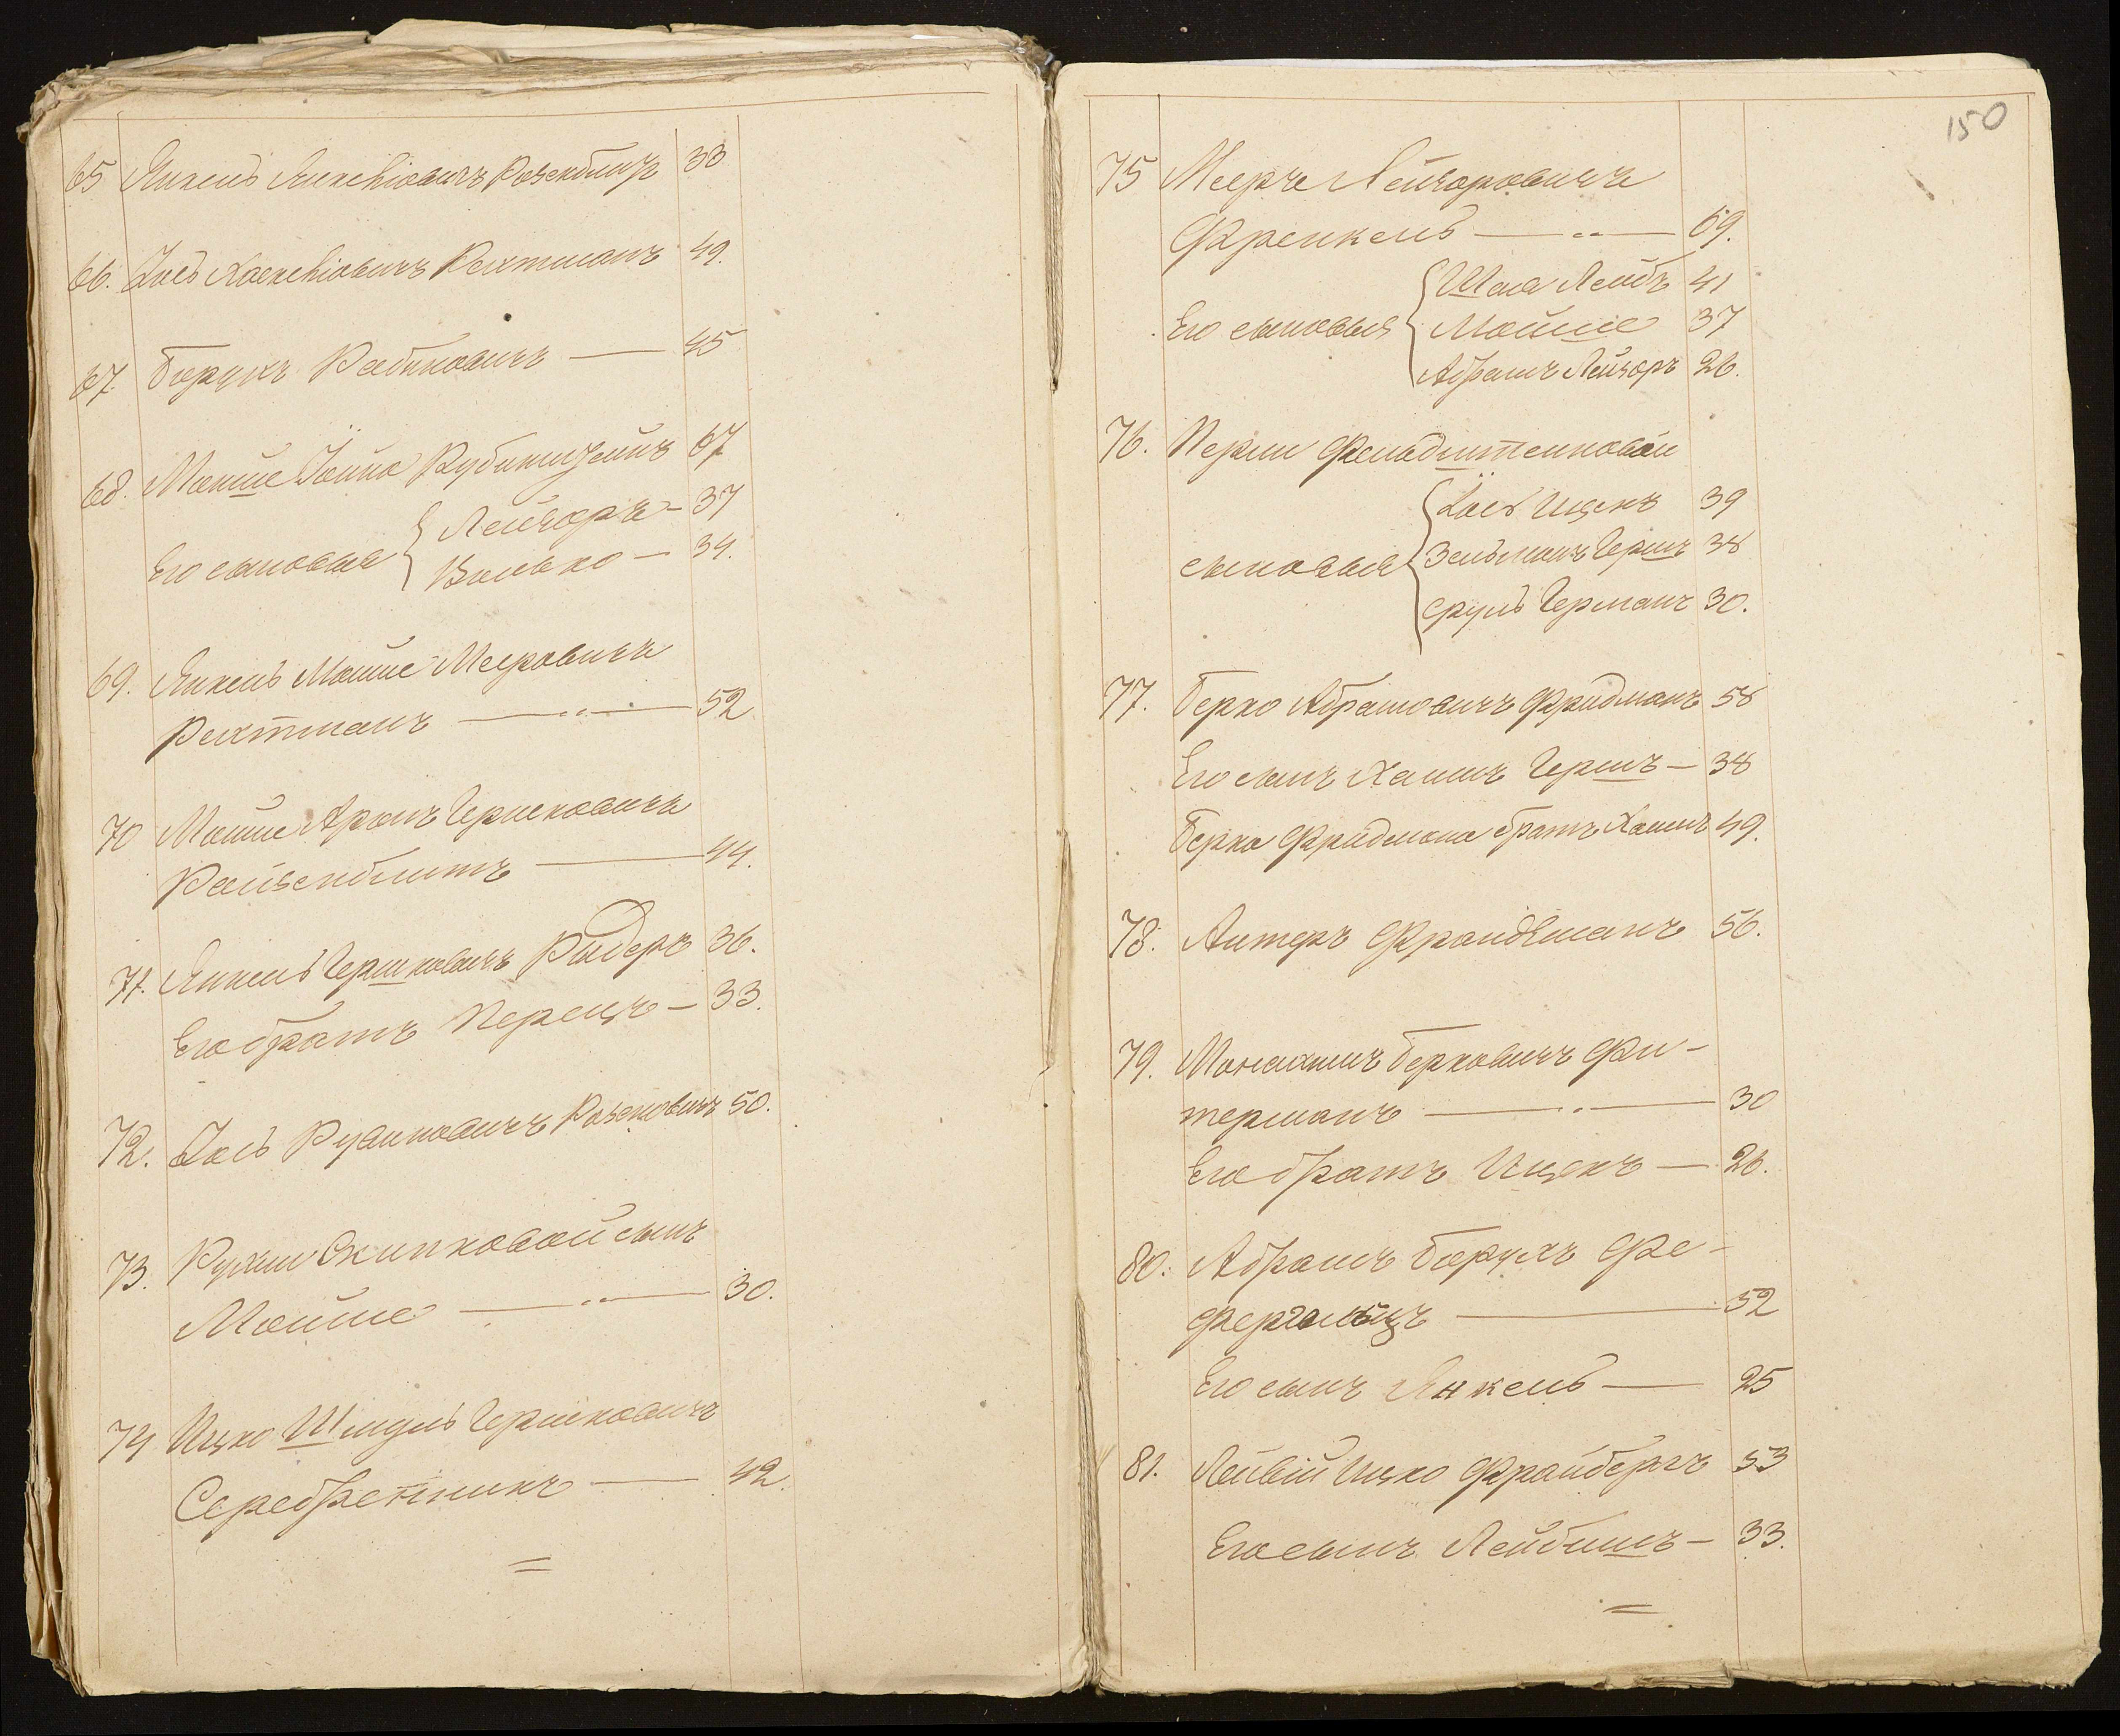 65 Янкель Янкелiовичъ Розенблитъ 33
66. Іось Хаскелiовичъ Рехтманъ 49.
67. Борухъ Рабиновичъ — 45
68. Мойше Іойна Рубинштейнъ 67
Его сыновья { Лейзоръ — 37
Волько — 34.
69. Янкель Мойше Мееровичъ
Рехтманъ — „ — 52
70 Мойше Аронъ Гершковичъ
Райзенблитъ — 44.
71. Янкель Гершковичъ Ридеръ 36.
Его братъ Перецъ — 33.
72. Іось Рувиновичъ Розеновичъ 50.
73. Рухли Скипковой сынъ
Мойше — „ — 30.
74 Ицко Шмуль Гершковичъ
Серебреникъ — 42.
=
150
75 Мееръ Лейзоровичъ
Френкель — „ — 69.
Его сыновья { Шая Лейбъ 41
Мойше 37
Абрамъ Лейзоръ 26.
76. Перли Фельдштейновой
сыновья { Іось Ицекъ 39
Зельманъ Гершъ 38
Сруль Германъ 30.
77. Берко Абрамовичъ Фридманъ 58
Его сынъ Хаимъ Гершъ — 38
Берка Фридмана братъ Хаимъ 49.
78. Алтеръ Фрайдманъ 56.
79. Монахимъ Берковичъ Фи-
терманъ — „ — 30
Его братъ Ицекъ — 26.
80. Абрамъ Борухъ Фе-
фергольцъ — 52
Его сынъ Янкель — 25
81. Лейвiй Ицко Фрайбергъ 53
Его сынъ Лейбишъ — 33.
=